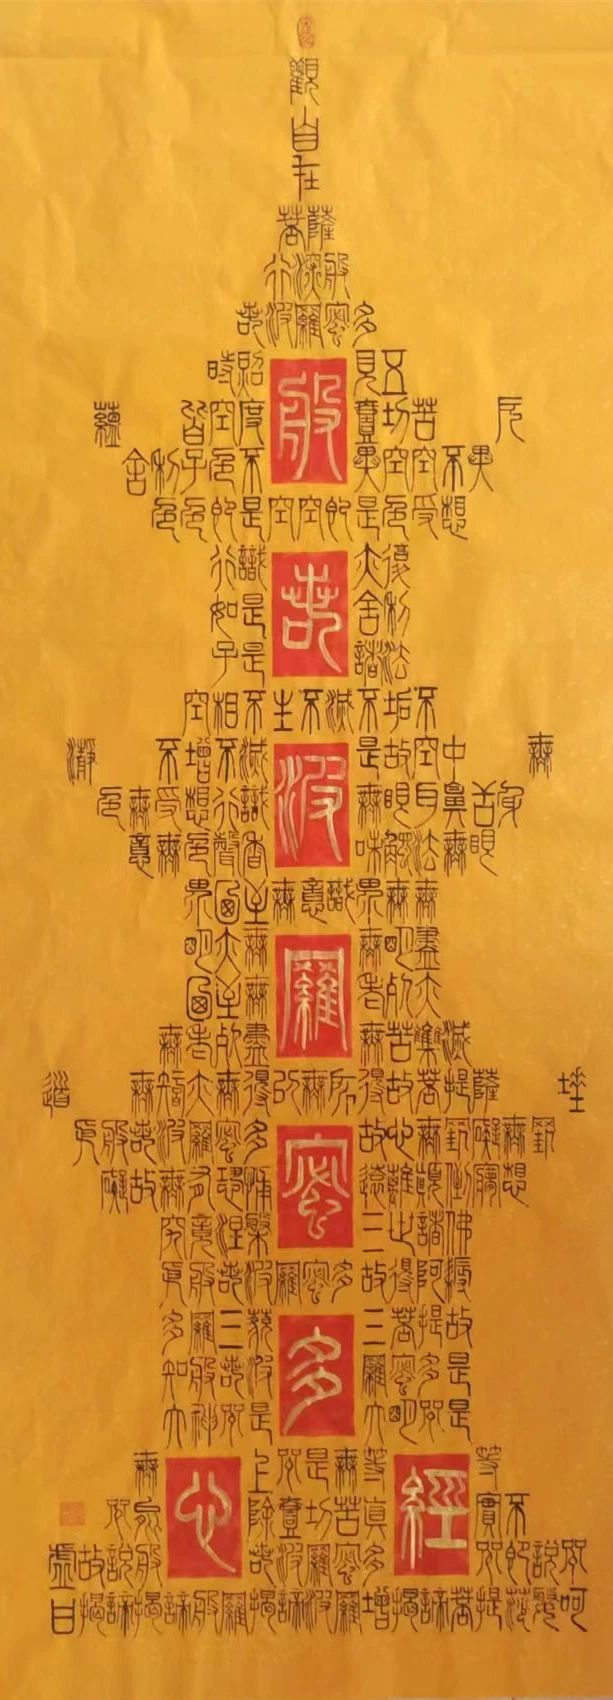 觀
自
在
菩薩
行深般
若波羅蜜多
時照見五
蘊皆空度一切苦厄
般
舍利子色不異空空不異
色色即是空空即是色受想
行識亦復
如是舍利
若
子是諸法
空相不生不滅不垢不
淨不增不減是故空中無
色無受想行識無眼耳鼻舌身
波
意無色聲香味觸法無眼
界乃至無意識界無無
明亦無無明盡亦
乃至無老死亦
羅
無老死盡無苦集滅
道無智亦無得以無所得故菩提薩埵
依般若波羅蜜多故心無罣礙無罣
礙故無有恐怖遠離顛倒夢想
蜜
究竟涅槃三世諸佛
依般若波羅蜜多故得阿耨
多羅三藐三菩提故
知般若波羅蜜多是
多
大神咒是大明咒是
無上咒是無等等
心
經
咒能除一切苦真實不
虛故說般若波羅蜜多咒即說咒
曰揭諦揭諦般羅揭諦波羅增揭諦菩提薩婆訶